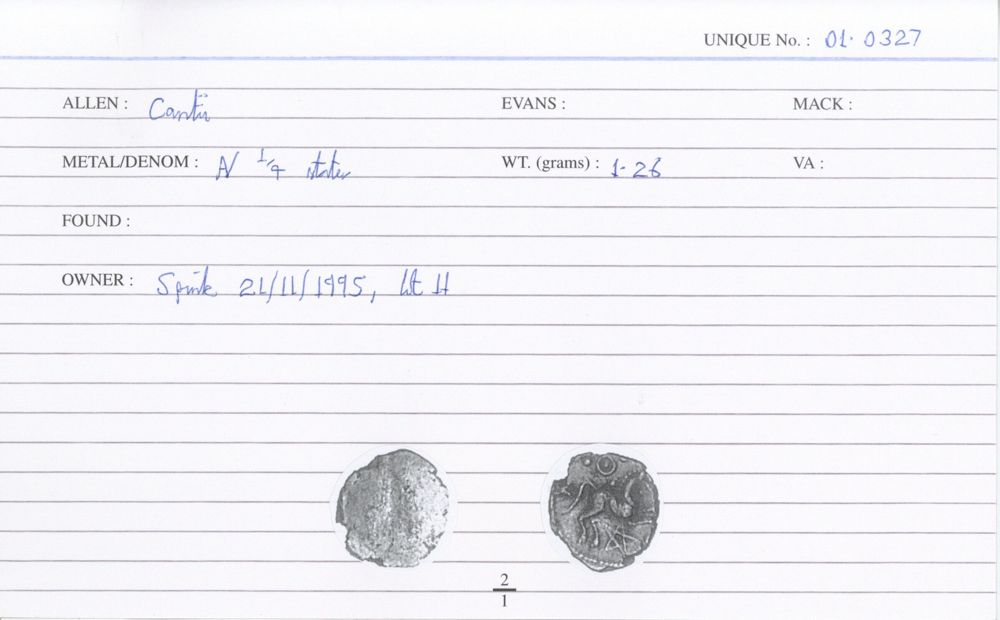 UNIQUE No. : 01·0327
ALLEN : Cantii EVANS : MACK :
METAL/DENOM : AV 1/4 stater WT. (grams) : 1·26 VA :
FOUND :
OWNER : Spink 21/11/1995, lot 11
2
1